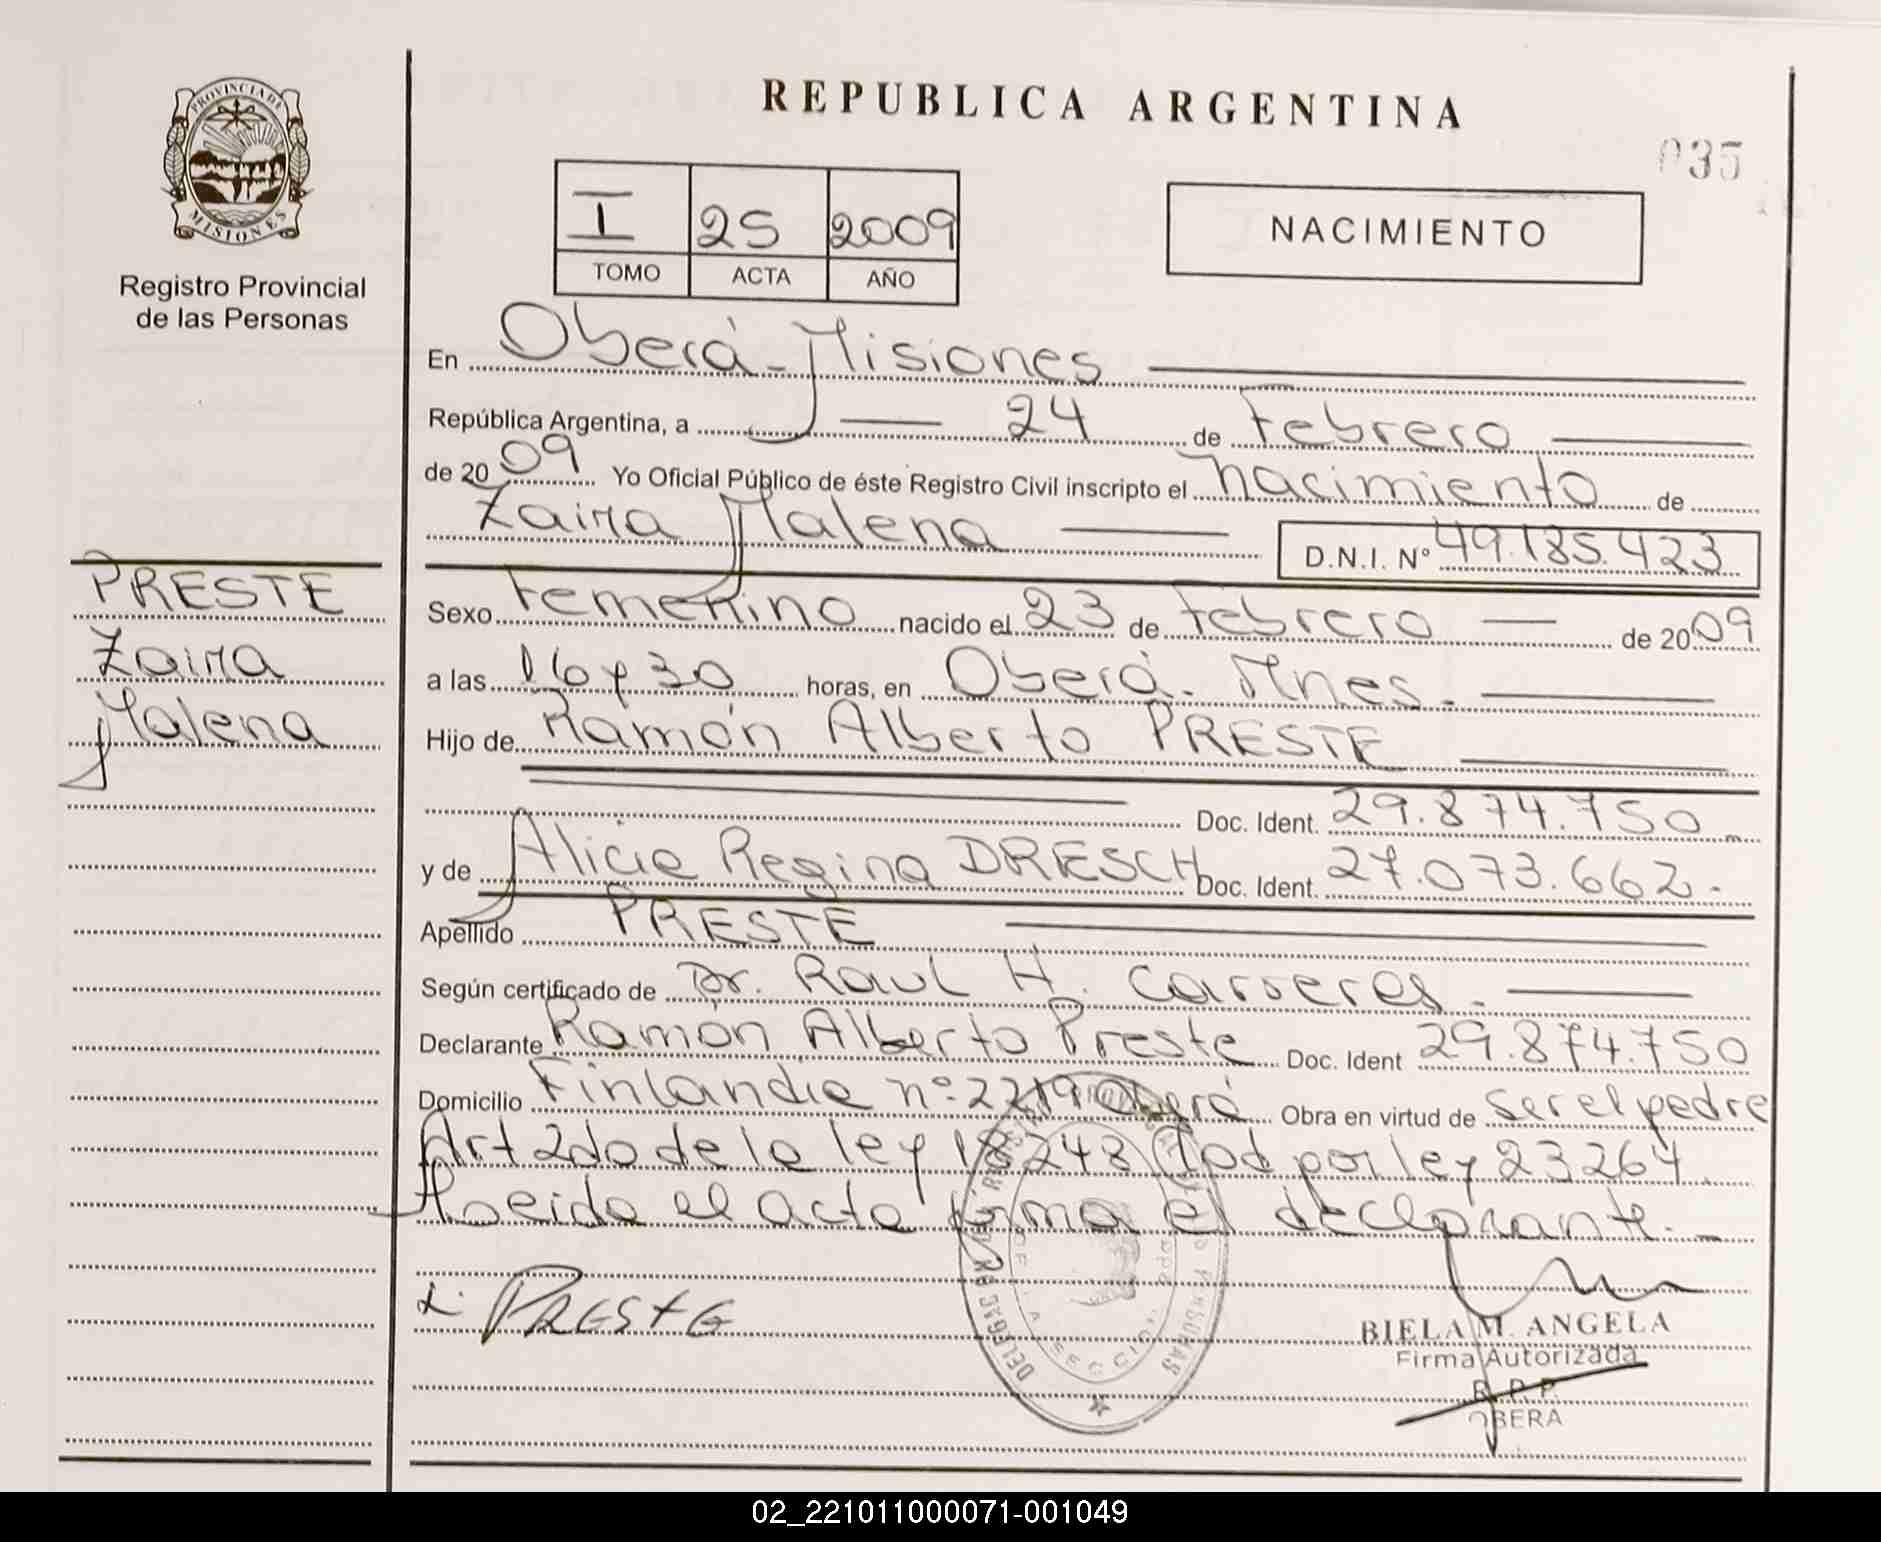 PROVINCIA DE
MISIONES
Registro Provincial
de las Personas
REPUBLICA ARGENTINA
035
I 25 2009
TOMO ACTA AÑO
NACIMIENTO
En Oberá - Misiones
República Argentina, a 24 de Febrero
de 2009 Yo Oficial Público de éste Registro Civil inscripto el nacimiento de
Zaira Malena D.N.I. Nº 49.185.423
PRESTE
Zaira
Malena
Sexo Femenino nacido el 23 de Febrero de 2009
a las 16 y 30 horas, en Oberá. Mnes.
Hijo de Ramón Alberto PRESTE
Doc. Ident. 29.874.750
y de Alicia Regina DRESCH Doc. Ident. 27.073.662.
Apellido PRESTE
Según certificado de Dr. Raul H. Carreres.
Declarante Ramón Alberto Preste Doc. Ident 29.874.750
Domicilio Finlandia nº 2219 Oberá Obra en virtud de ser el padre
Art 2do de la ley 18248 Mod por ley 23264
leida el acta firma el declarante.
PRESTE
BIELA M. ANGELA
Firma Autorizada
R. P. P.
OBERA
02_221011000071-001049